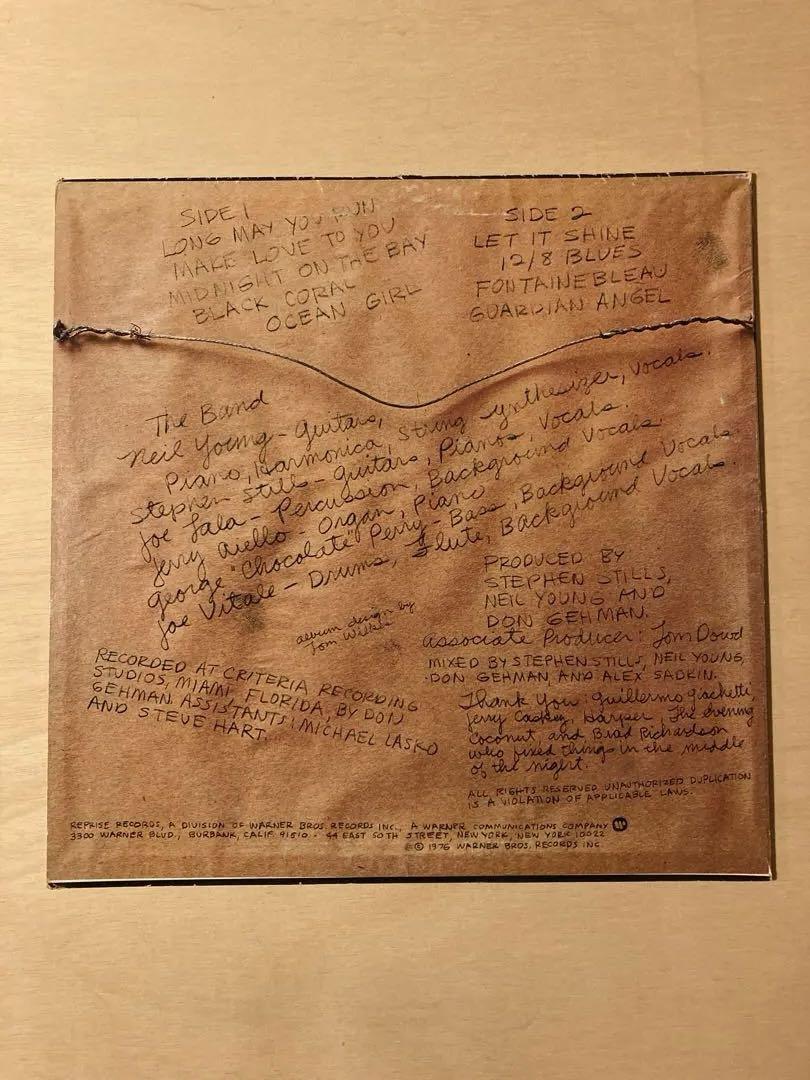 SIDE 1
LONG MAY YOU RUN
MAKE LOVE TO YOU
MIDNIGHT ON THE BAY
BLACK CORAL
OCEAN GIRL
SIDE 2
LET IT SHINE
12/8 BLUES
FONTAINEBLEAU
GUARDIAN ANGEL
The Band
Neil Young - Guitars,
Piano, Harmonica, String Synthesizer, Vocals.
Stephen Stills - Guitars, Pianos, Vocals.
Joe Lala - Percussion, Background Vocals.
Jerry Aiello - Organ, Piano
George "Chocolate" Perry - Bass, Background Vocals.
Joe Vitale - Drums, Flute, Background Vocals.
album design by
Tom Wilkes
PRODUCED BY
STEPHEN STILLS,
NEIL YOUNG AND
DON GEHMAN.
Associate Producer: Tom Dowd
MIXED BY STEPHEN STILLS, NEIL YOUNG,
DON GEHMAN, AND ALEX SADKIN.
RECORDED AT CRITERIA RECORDING
STUDIOS, MIAMI, FLORIDA, BY DON
GEHMAN. ASSISTANTS: MICHAEL LASKO
AND STEVE HART.
Thank You: Guillermo Giachetti,
Jerry Caskey, Harper, The evening
Coconut, and Brad Richardson
who fixed things in the middle
of the night.
ALL RIGHTS RESERVED UNAUTHORIZED DUPLICATION
IS A VIOLATION OF APPLICABLE LAWS.
REPRISE RECORDS, A DIVISION OF WARNER BROS. RECORDS INC., A WARNER COMMUNICATIONS COMPANY
3300 WARNER BLVD., BURBANK, CALIF. 91510 · 44 EAST 50TH STREET, NEW YORK, NEW YORK 10022
© 1976 WARNER BROS. RECORDS INC.